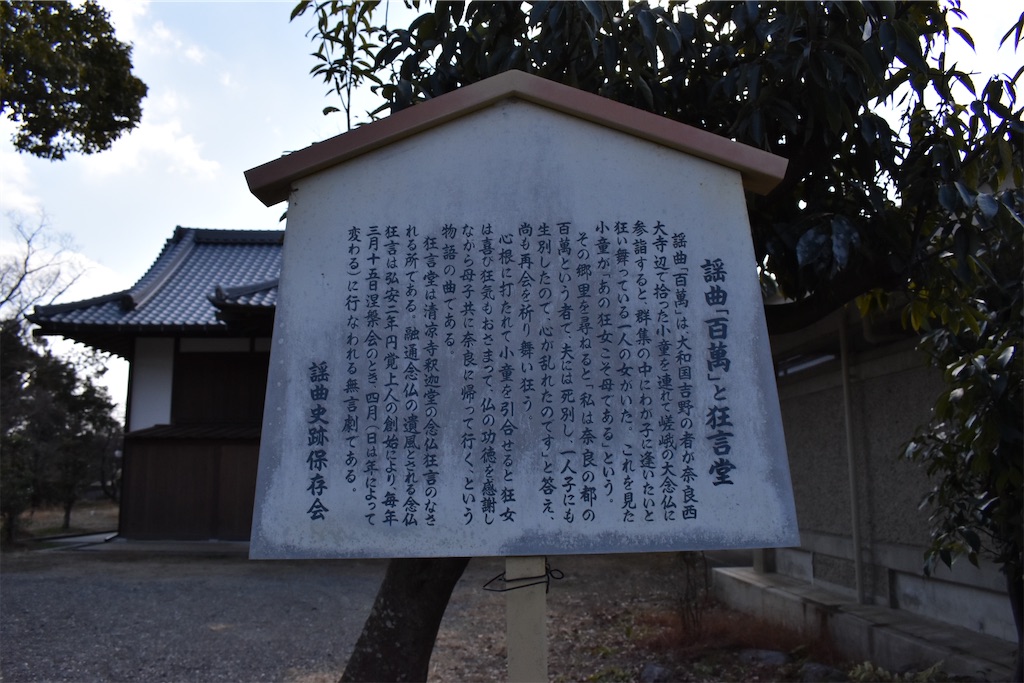 謡曲「百萬」と狂言堂
謡曲「百萬」は、大和国吉野の者が奈良西
大寺辺で拾った小童を連れて嵯峨の大念仏に
参詣すると、群集の中にわが子に逢いたいと
狂い舞っている一人の女がいた。これを見た
小童が「あの狂女こそ母である」という。
その郷里を尋ねると「私は奈良の都の
百萬という者で、夫には死別し、一人子にも
生別したので、心が乱れたのです」と答え、
尚も再会を祈り舞い狂う。
心根に打たれて小童を引合せると狂女
は喜び狂気もおさまって、仏の功徳を感謝し
なから母子共に奈良に帰って行く、という
物語の曲である。
狂言堂は清凉寺釈迦堂の念仏狂言のなさ
れる所である。融通念仏の遺風とされる念仏
狂言は弘安二年円覚上人の創始により、毎年
三月十五日涅槃会のとき、四月(日は年によって
変わる)に行なわれる無言劇である。
謡曲史跡保存会